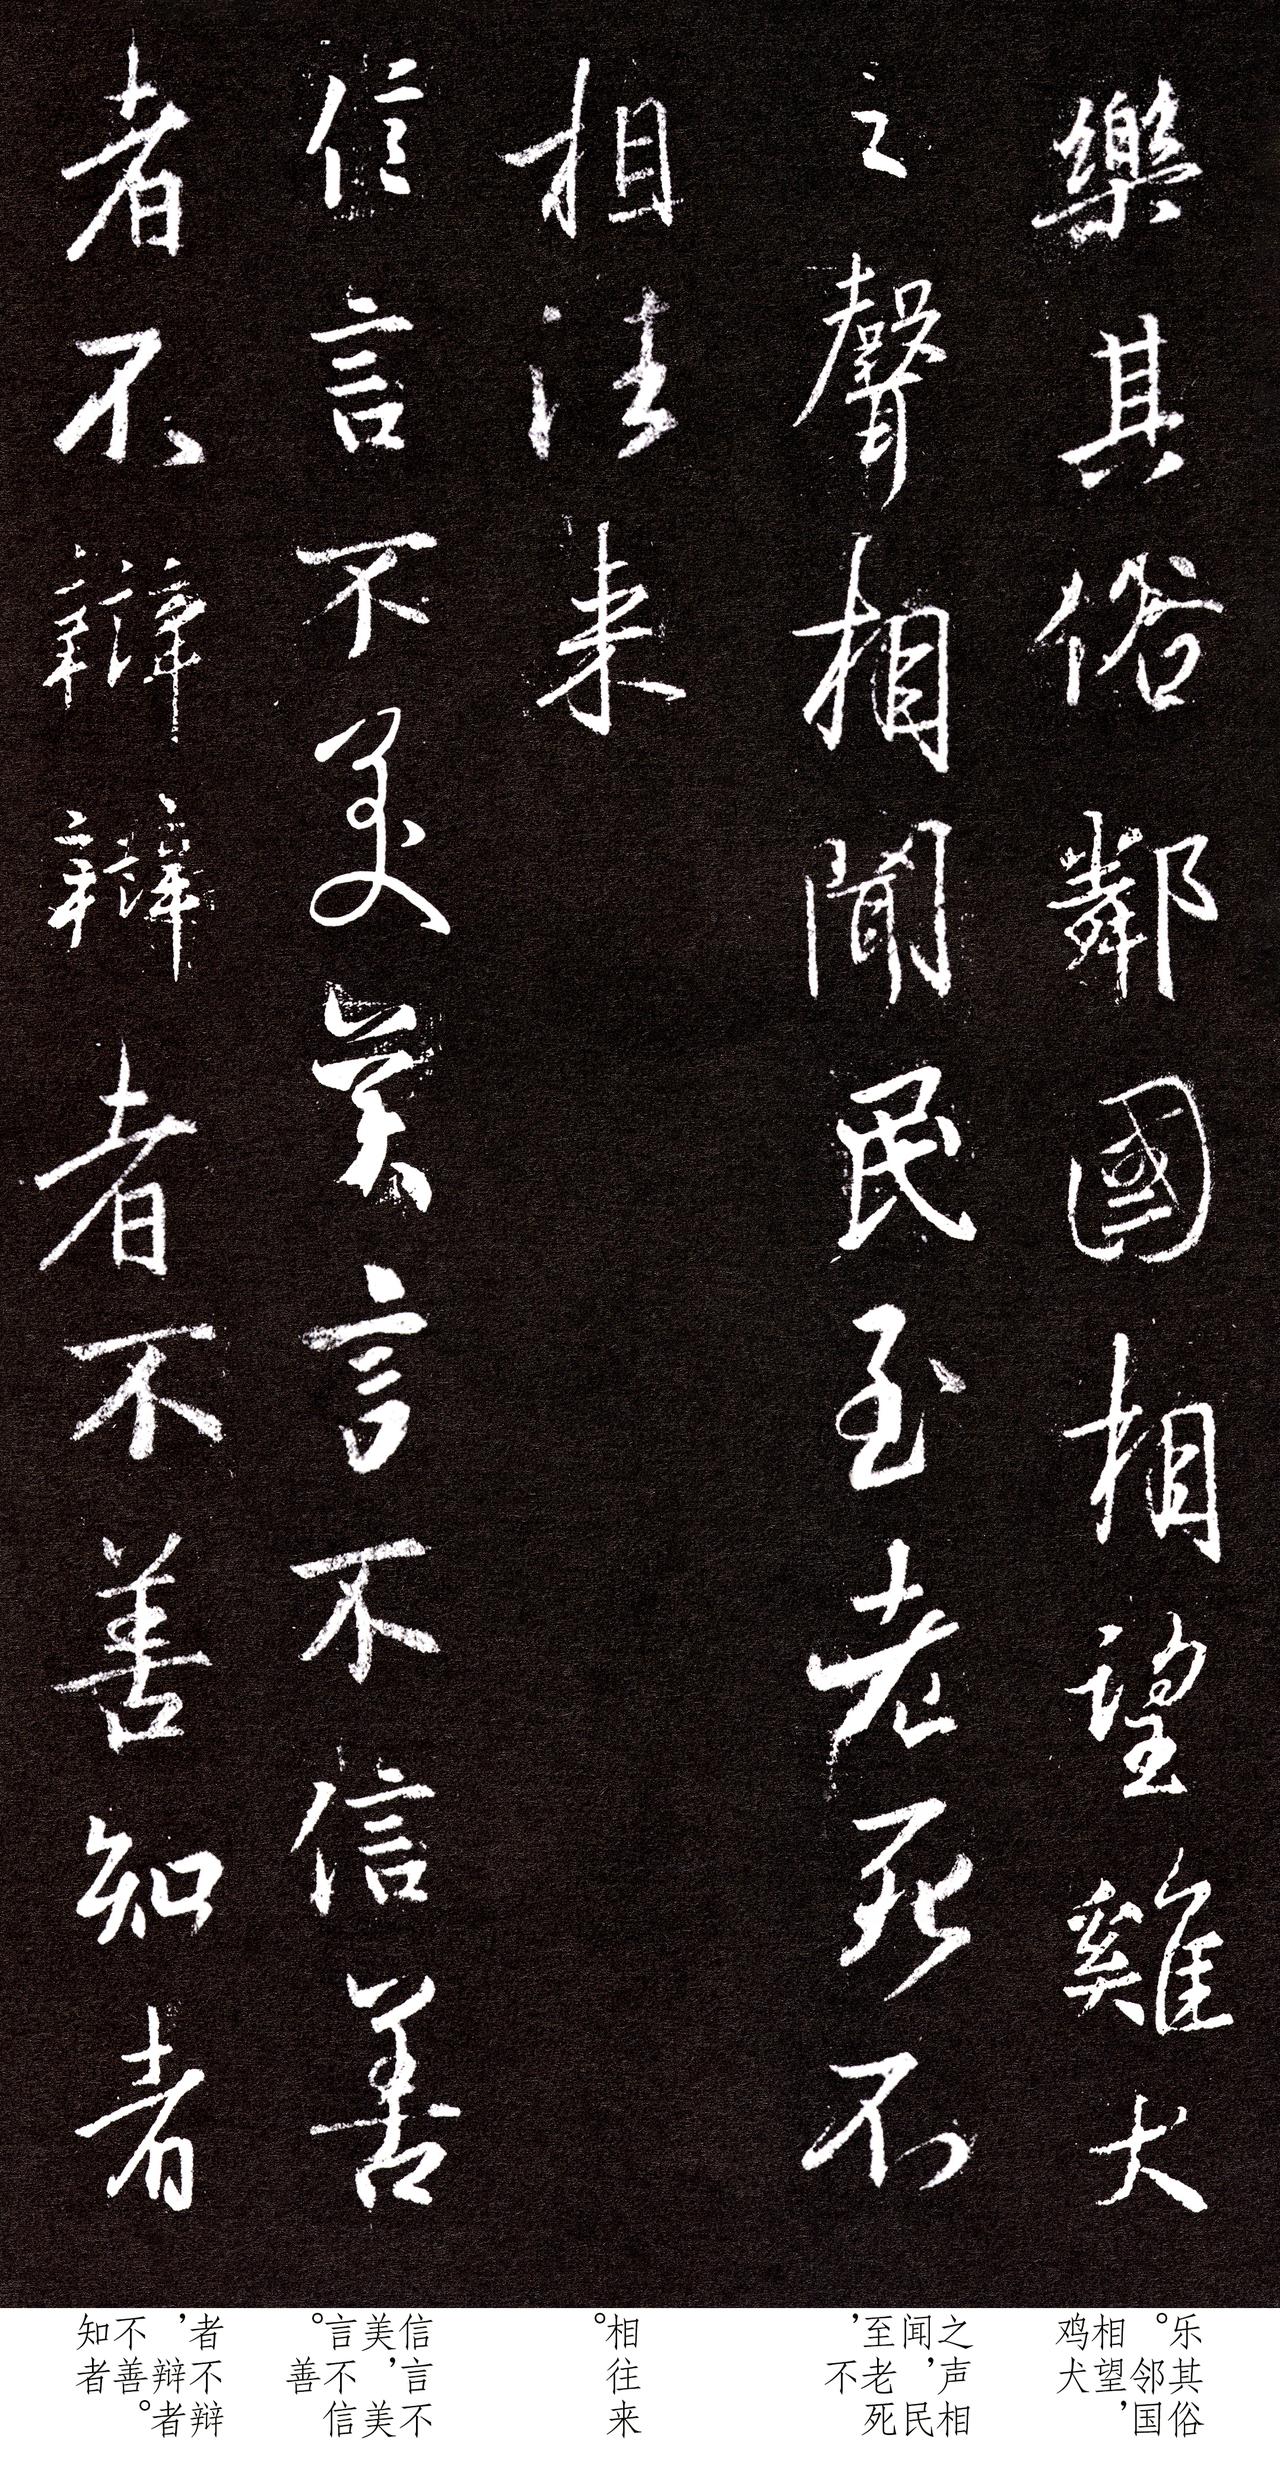 樂其俗鄰國相望雞犬
之聲相聞民至老死不
相往来
信言不美美言不信善
者不辯辯者不善知者
乐其俗
。邻国
相望，
鸡犬
之声相
闻，民
至老死
，不
相往来
。
信言不
美，美
言不信
。善
者不辩
，辩者
不善。
知者